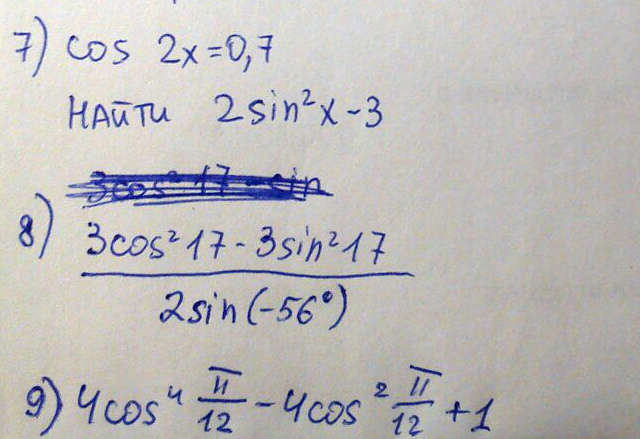 7) cos 2x=0,7
НАЙТИ 2sin²x-3
3cos² 17 - sin
8) 3cos²17-3sin²17
2sin(-56°)
9) 4cos⁴ π/12 - 4cos² π/12 + 1